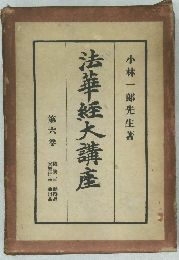 小林一郎先生著
法華經大講座
第六卷